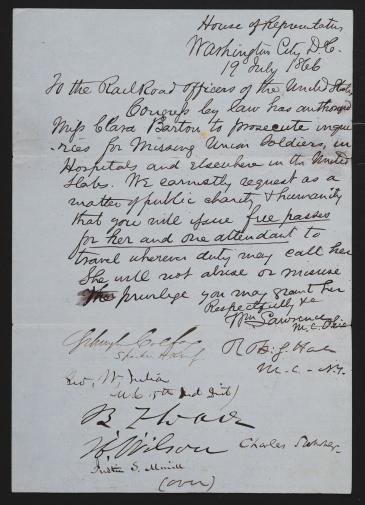 House of Representatives
Washington City D.C.
19 July 1866
To the Rail Road Officers of the United States
Congress by law has authorized
Miss Clara Barton to prosecute inqui
-ries for Missing Union Soldiers, in
Hospitals and elsewhere in the United
States. We earnestly request as a
matter of public charity & humanity
that you will issue free passes
for her and one attendant to
travel wherever duty may call her
She will not abuse or misuse
The privilege you may grant her
Respectfully &c
Wm Lawrence
M.C. Ohio
Schuyler Colfax
R. S. Hale
M.C. - NY.
Geo. W. Julian
M.C. 5th Ind Dist)
B F Wade
H Wilson
Charles Sumner
Justin S. Morrill
(over)